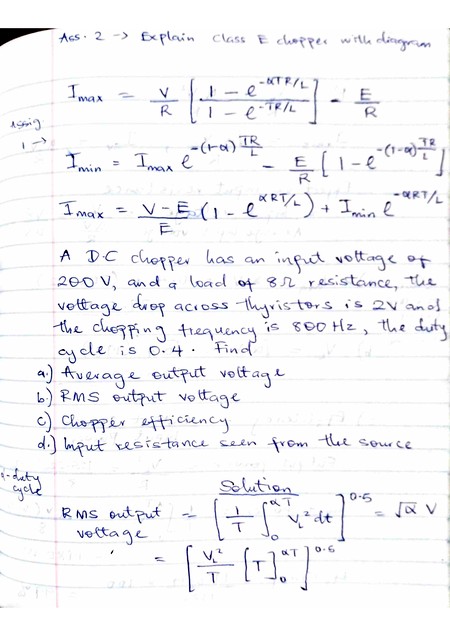 Ass. 2 → Explain Class E chopper with diagram
I max = V/R [ (1 - e^-αTR/L) / (1 - e^-TR/L) ] - E/R
Assig
1 →
I min = I max e^-(1-α) TR/L - E/R [ 1 - e^-(1-α) TR/L ]
I max = (V - E)/E (1 - e^αRT/L) + I min e^-αRT/L
A D.C chopper has an input voltage of
200 V, and a load of 8Ω resistance, the
voltage drop across thyristors is 2V and
the chopping frequency is 800 Hz, the duty
cycle is 0.4. Find
a.) Average output voltage
b.) RMS output voltage
c.) Chopper efficiency
d.) Input resistance seen from the source
duty
cycle
Solution
RMS output voltage = [ 1/T ∫₀^αT V_L² dt ]^0.5 = √α V
= [ V_L²/T [T]₀^αT ]^0.5